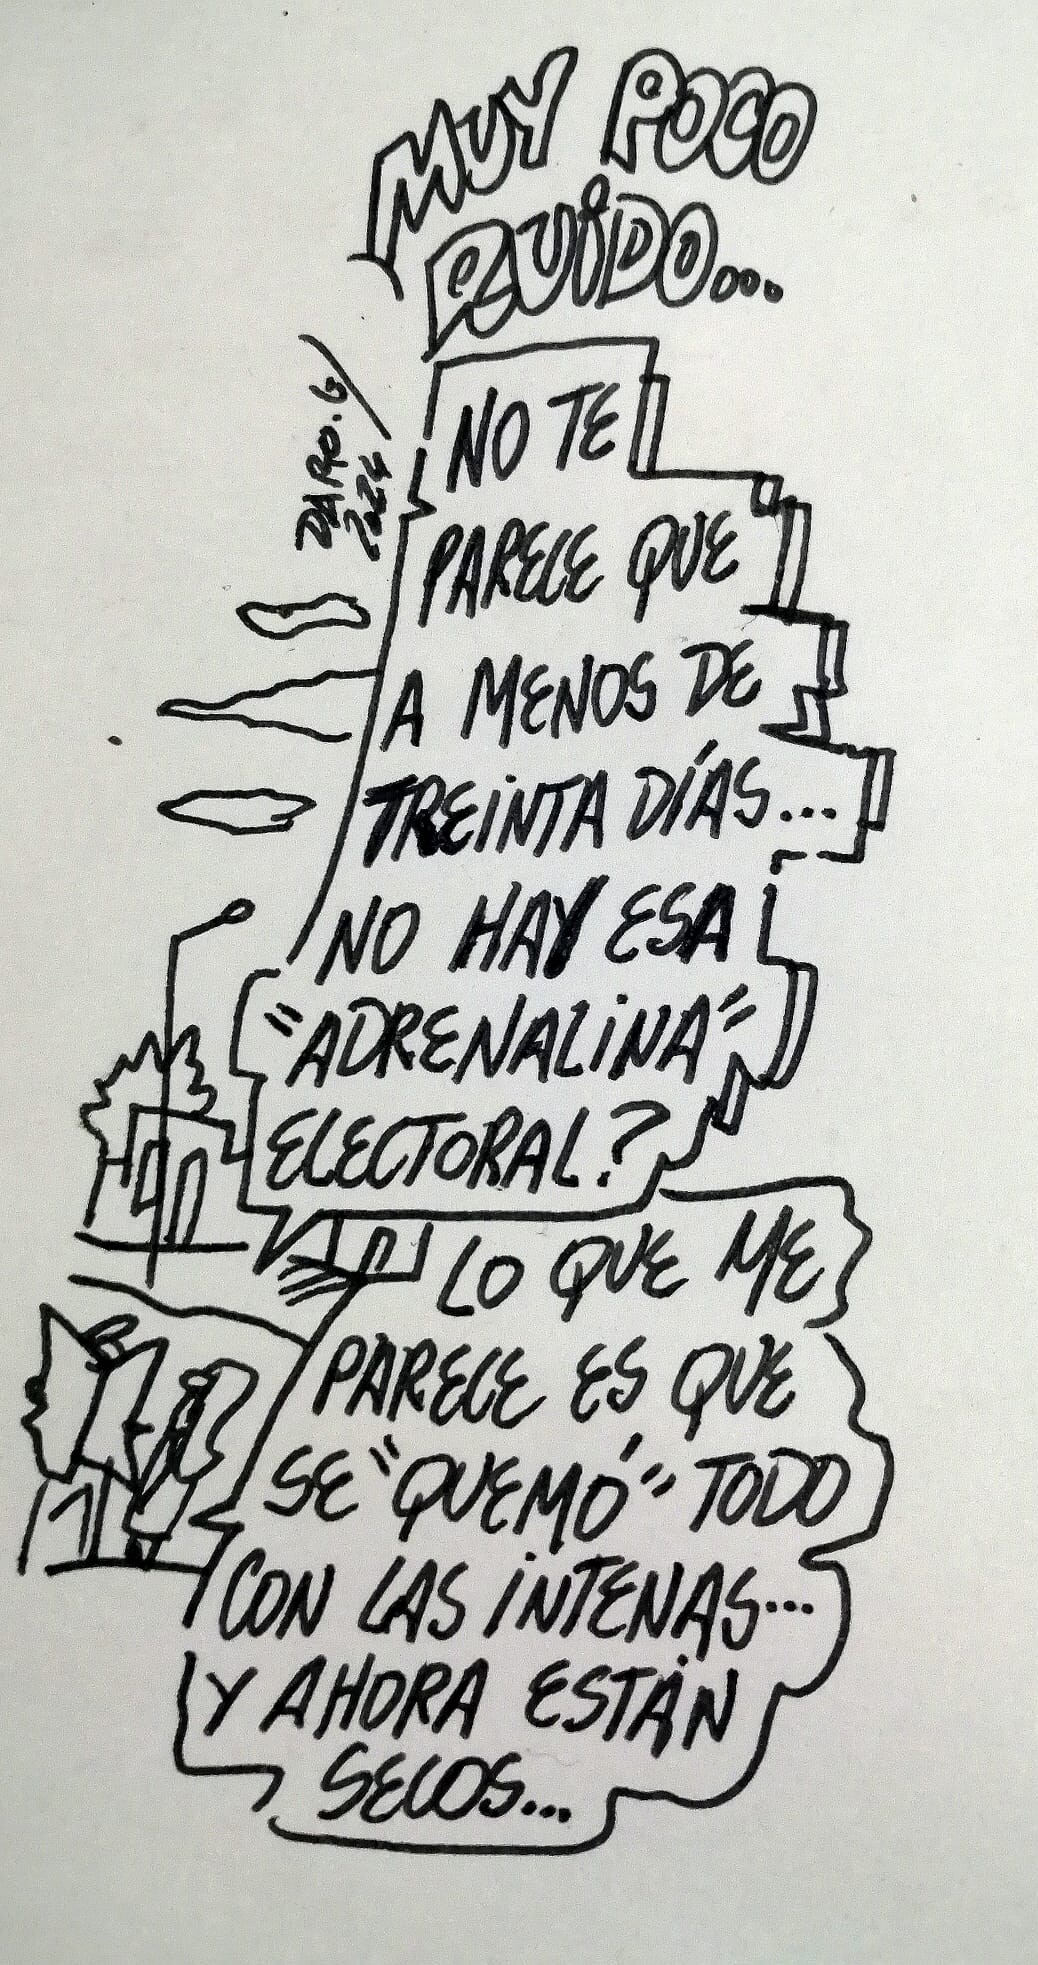 MUY POCO
RUIDO...
DARO.G
2024
NO TE
PARECE QUE
A MENOS DE
TREINTA DÍAS...
NO HAY ESA
"ADRENALINA"
ELECTORAL?
LO QUE ME
PARECE ES QUE
SE "QUEMÓ" TODO
CON LAS INTENAS...
Y AHORA ESTÁN
SECOS...